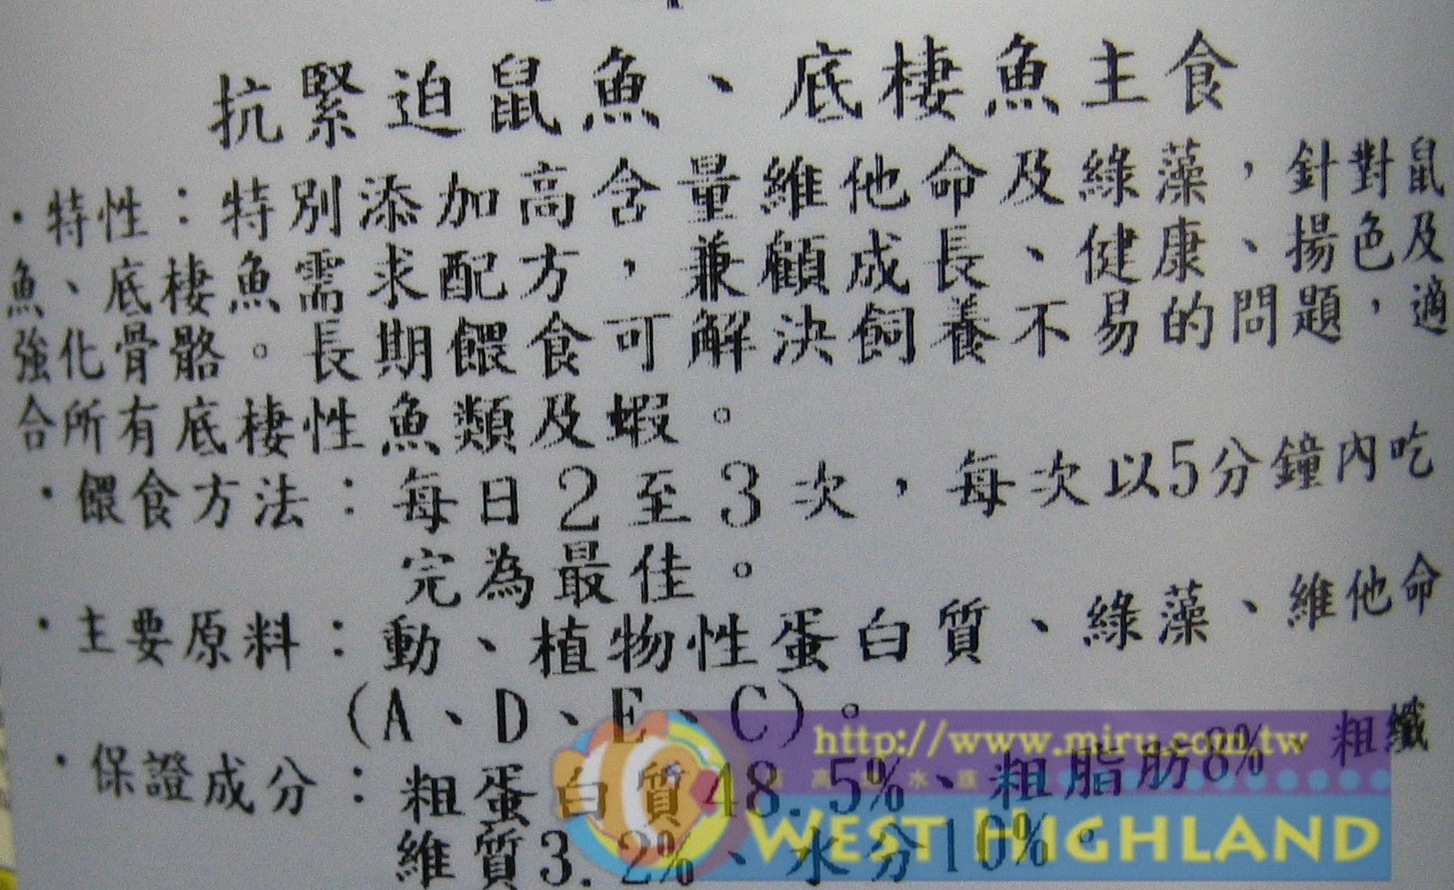 抗緊迫鼠魚、底棲魚主食
・特性：特別添加高含量維他命及綠藻，針對鼠
魚、底棲魚需求配方，兼顧成長、健康、揚色及
強化骨骼。長期餵食可解決飼養不易的問題，適
合所有底棲性魚類及蝦。
・餵食方法：每日2至3次，每次以5分鐘內吃
完為最佳。
・主要原料：動、植物性蛋白質、綠藻、維他命
(A、D、E、C)。
http://www.miru.com.tw
・保證成分：粗蛋白質48.5%、粗脂肪8%、粗纖
水族
維質3.2%、水分10%。
WEST HIGHLAND